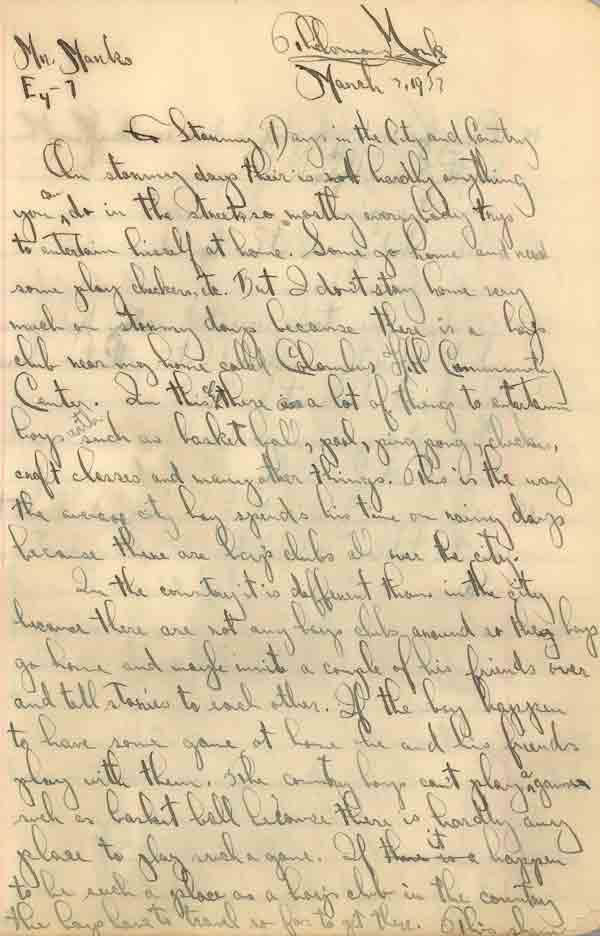 Mr. Manks
Thelonious Monk
Ey-7
March 2, 1937
Stormy Days in the City and Country
On stormy days their is not hardly anything
you can do in the street, so mostly everybody trys
to entertain hisself at home. Some go home and read
some play checkers, etc. But I don't stay home very
much on stormy days because there is a boys
club near my home called Columbus Hill Community
Center. In this there is a lot of things to entertain
boys with such as basket ball, pool, ping pong, checkers,
craft classes and many other things. This is the way
the average city boy spends his time on rainy days
because there are boys clubs all over the city.
In the country it is different than in the city
because there are not any boys clubs around so the boys
go home and maybe invite a couple of his friends over
and tell stories to each other. If the boy happen
to have some game at home he and his friends
play with them. The country boys can't play a game
such as basket ball because there is hardly any
place to play such a game. If it happen
to be such a place as a boys club in the country
the boys have to travel so far to get there. This